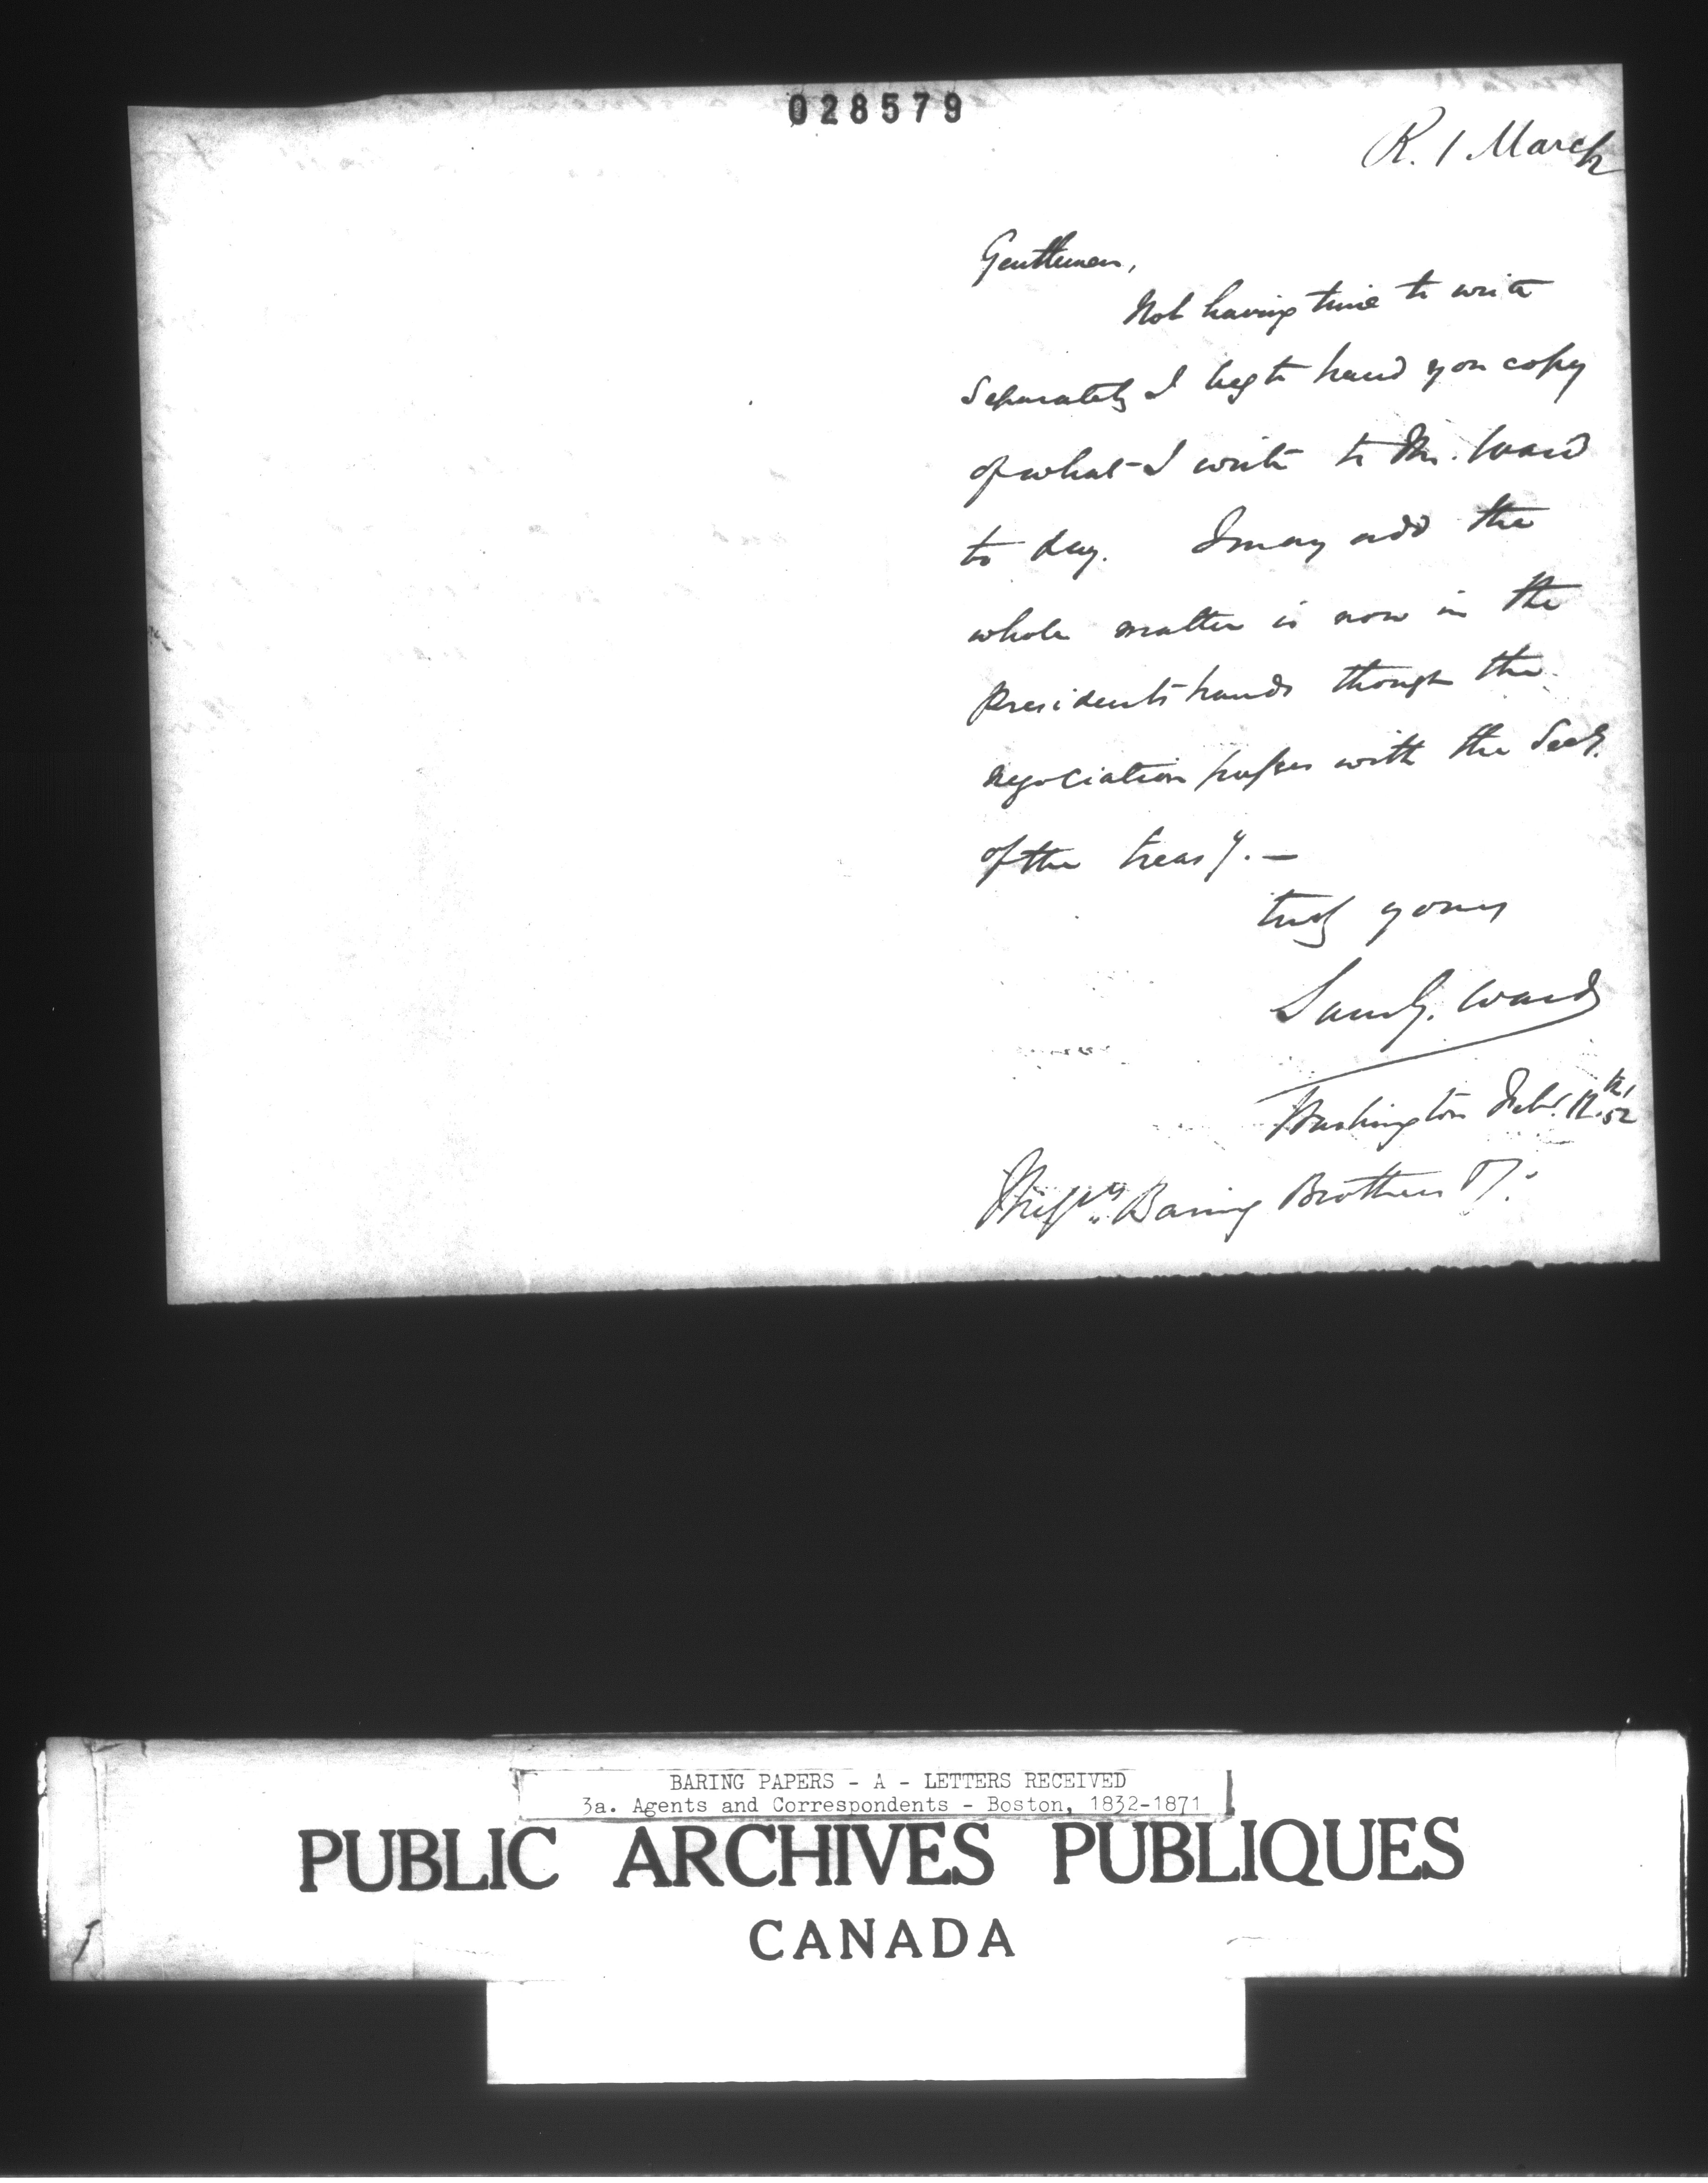 028579
R. 1 March
Gentlemen,
Not having time to write
separately I beg to hand you copy
of what I write to Mr. Ward
to day. I may add the
whole matter is now in the
Presidents hands though the
negociation passes with the Secy.
of the treasy. —
truly yours
Saml G. Ward
Washington Feby. 12th, 52
Messrs. Baring Brothers
BARING PAPERS - A - LETTERS RECEIVED
3a. Agents and Correspondents - Boston, 1832-1871
PUBLIC ARCHIVES PUBLIQUES
CANADA